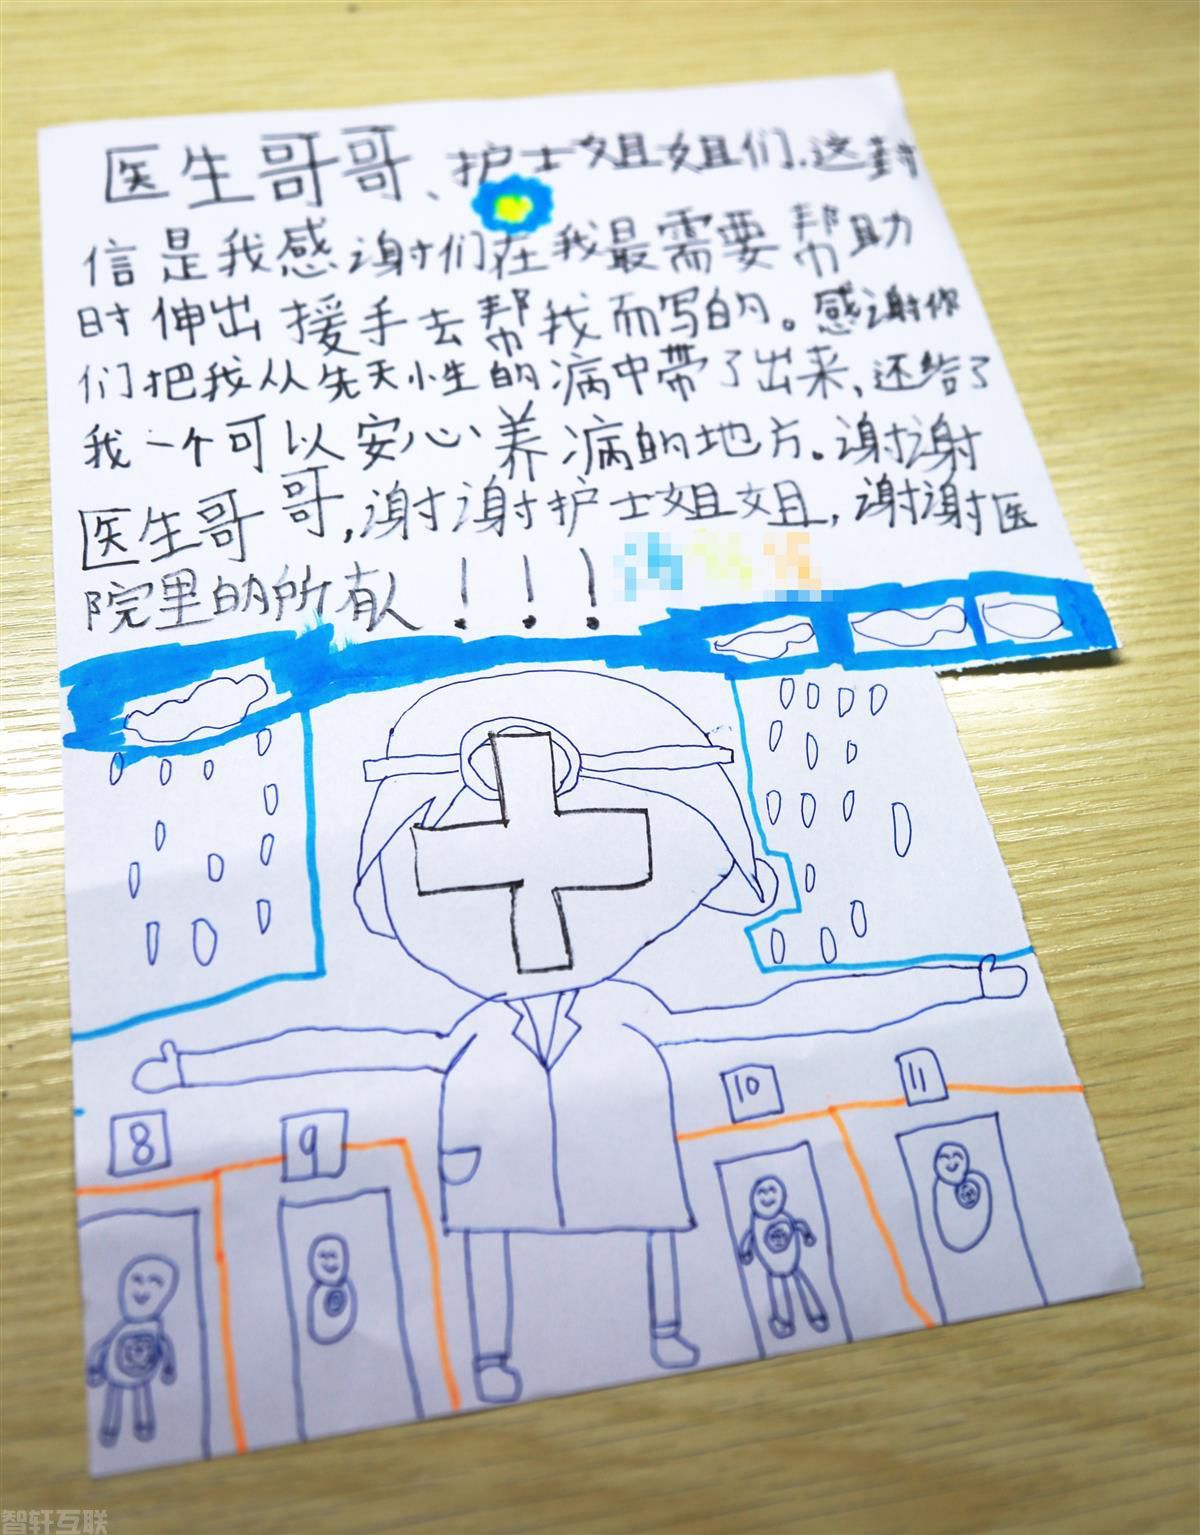 医生哥哥、护士姐姐们.这封
信是我感谢们在我最需要帮助
时伸出援手去帮我而写的。感谢你
们把我从先天性的病中带了出来,还给了
我一个可以安心养病的地方。谢谢
医生哥哥,谢谢护士姐姐,谢谢医
院里的所有人!!!
8
9
10
11
智轩互联